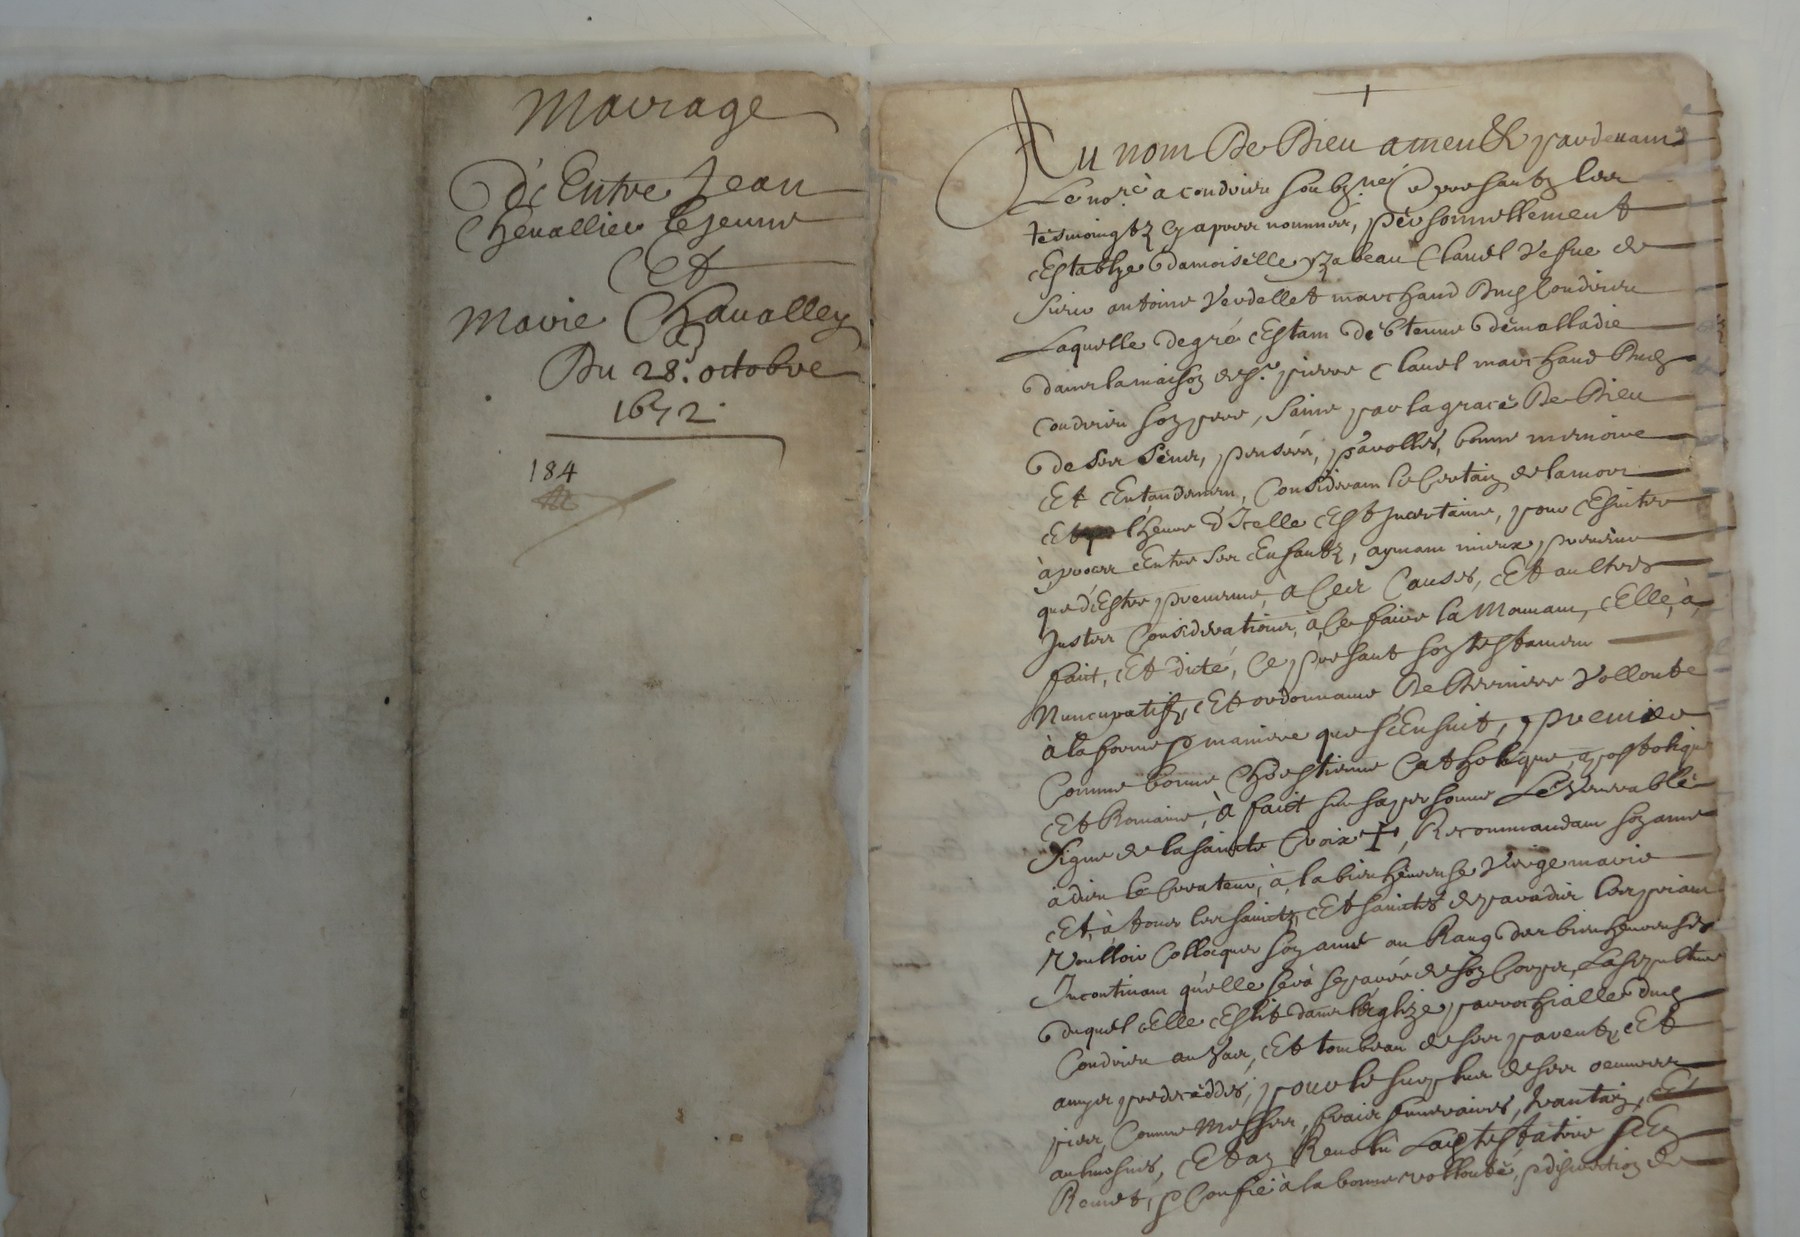 Mariage
D'Entre Jean
Chevallier le Jeune
Et
Marie Chavalley
Du 28.e octobre
1672.
184
Au nom De Dieu amen & pardevant
Le no.re a condrieu soubz.né & presantz les
tesmoingtz cy apres nommes, personnellement
Establye damoiselle yzabeau Clavel vefve de
sieur antoine Verdellet marchand dud Condrieu
Laquelle de gré Estant détenue de malladie
dans la maison de s.r pierre Clavel marchand dud
condrieu son pere, saine par la grace De Dieu
de ses sens, pensées, parolles, bonne memoire
Et Entandemen, Considerant le Certain de la mort
Et l'heure d'Icelle Est Incertaine, pour Esviter
a proces Entre ses Enfantz, aymant mieux prevenir
que d'Estre prevenue, a Ces Causes, Et aultres
Justes Considerations, à Ce faire la Mouvant, Elle, à
fait, Et dicté, Ce presant son testamen
Nuncupatif, Et ordonnance De Derniere Vollonté
à la forme & maniere que s'Ensuit, premier
Comme bonne Chrestienne Catholique, apostolique
Et Romaine, à faict sur sa personne Le Venerable
signe de la saincte Croix +, Recommandant son ame
à dieu le Createur, à la bien heureuse Vierge marie
Et, à tous les sainctz, Et sainctes de paradis les priant
Voulloir Colloquer son ame au Rang des bien heureuses
Incontinant qu'elle sera separée de son Corps, La sepulture
duquel Elle Eslit dans l'églize parrochialle dud
Condrieu au Vas, Et tombeau de ses parentz, Et
amys predecéddés, pour le surplus de ses oeuvres
pies, Comme Messes, frais funeraires, luantaiz, Et
aulmosnes, Et az Revestu Lad testatrice s'En
Remet, & Confie à la bonne vollonté, & discretion de